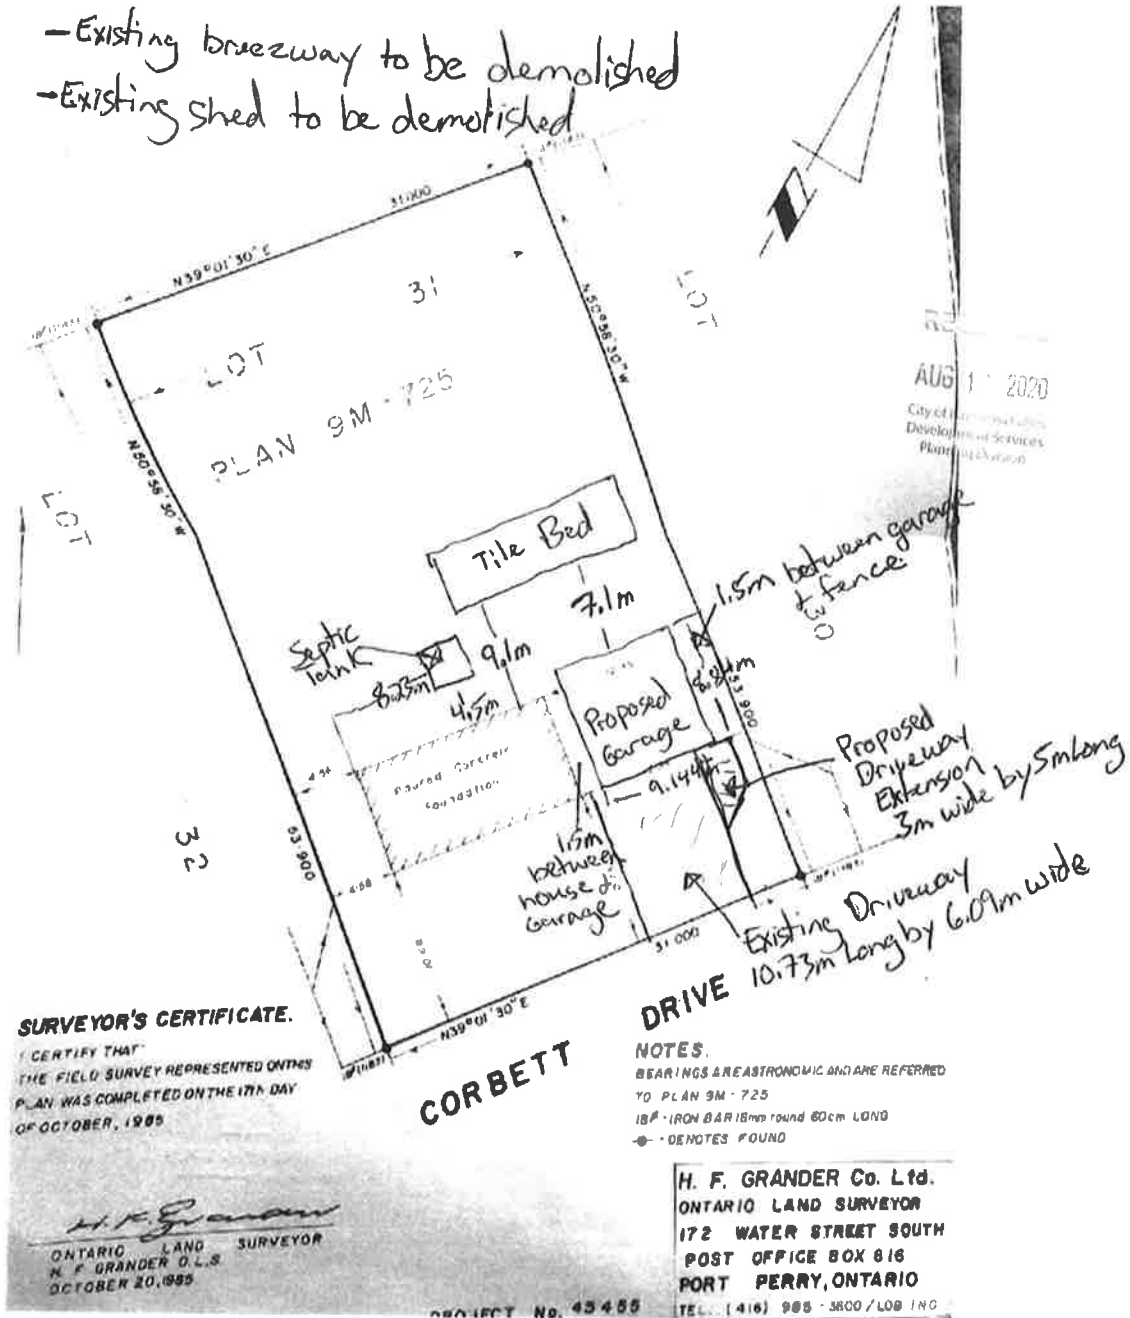 -Existing breezway to be demolished
-Existing shed to be demolished
31.000
N39°01'30"E
31
LOT
PLAN 9M-725
N50°58'30"W
N50°58'30"W
LOT
30
LOT
32
AUG 1 2020
City of
Development Services
Planning Division
Tile Bed
7.1m
9.1m
Septic
tank
8.23m
4.5m
1.5m between garage
& fence
8.84m
53.900
Proposed
Garage
9.144m
Poured Concrete
Foundation
Proposed
Driveway
Extension
3m wide by 5m Long
53.900
1.5m
between
house &
Garage
Existing Driveway
10.73m Long by 6.09m wide
31.000
N39°01'30"E
CORBETT DRIVE
SURVEYOR'S CERTIFICATE.
I CERTIFY THAT
THE FIELD SURVEY REPRESENTED ON THIS
PLAN WAS COMPLETED ON THE 17th DAY
OF OCTOBER, 1985
H. F. Grander
ONTARIO LAND SURVEYOR
H F GRANDER O.L.S
OCTOBER 20, 1985
NOTES.
BEARINGS ARE ASTRONOMIC AND ARE REFERRED
TO PLAN 9M-725
IB - IRON BAR 18mm round 60cm LONG
- DENOTES FOUND
H. F. GRANDER Co. Ltd.
ONTARIO LAND SURVEYOR
172 WATER STREET SOUTH
POST OFFICE BOX 816
PORT PERRY, ONTARIO
TEL. (416) 985-3600
PROJECT No. 45455